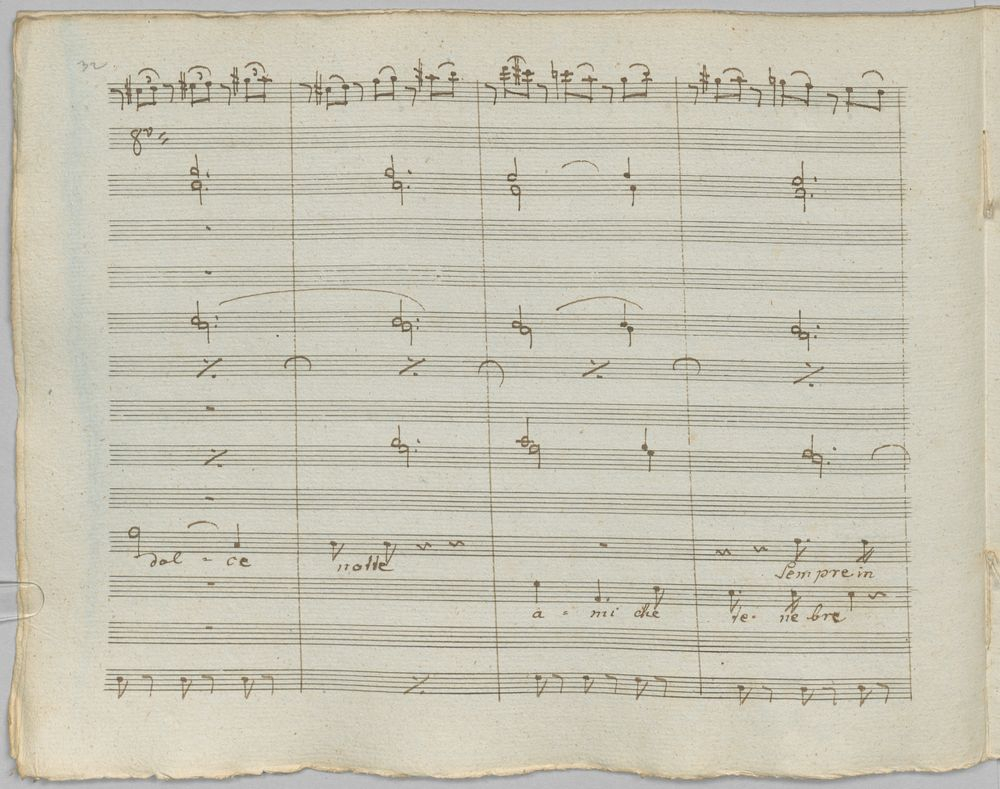 32
3 3 3
8va
dol - ce notte Sempre in
a - mi che te - ne bre